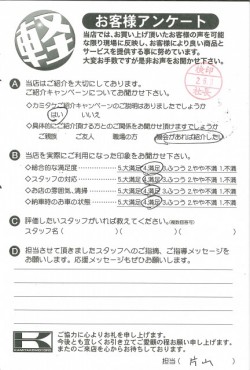 軽
お客様アンケート
当店では、お買い上げ頂いたお客様の声を可能
な限り現場に反映し、お客様により良い商品と
サービスを提供する事に努めています。
大変お手数ですが是非お声をお聞かせ下さい。
A 当店はご紹介を大切にしております。
ご紹介キャンペーンについてお聞かせ下さい。
◇カミタケご紹介キャンペーンのご説明はありましたでしょうか
はい いいえ
◇具体的にご紹介頂ける方とのご関係をお聞かせ頂けますでしょうか
ご親族 ご友人 職場の方 機会があれば紹介したい
B 当店を実際にご利用になった印象をお聞かせ下さい。
◇総合的な満足度 5.大満足 4.満足 3.ふつう 2.やや不満 1.不満
◇スタッフの対応 5.大満足 4.満足 3.ふつう 2.やや不満 1.不満
◇お店の雰囲気、清掃 5.大満足 4.満足 3.ふつう 2.やや不満 1.不満
◇納車時のお車の状態 5.大満足 4.満足 3.ふつう 2.やや不満 1.不満
C 評価したいスタッフがいれば教えてください。(複数回答可)
スタッフ名( )( )( )
D 担当させて頂きましたスタッフへのご指摘、ご指導メッセージを
お願いします。応援メッセージもぜひお願いします。
K
ご協力に心よりお礼を申し上げます。
今後とも宜しくお引き立てご愛顧の程お願い申し上げます。
またのご来店を心からお待ちしております。
担当( 片山 )